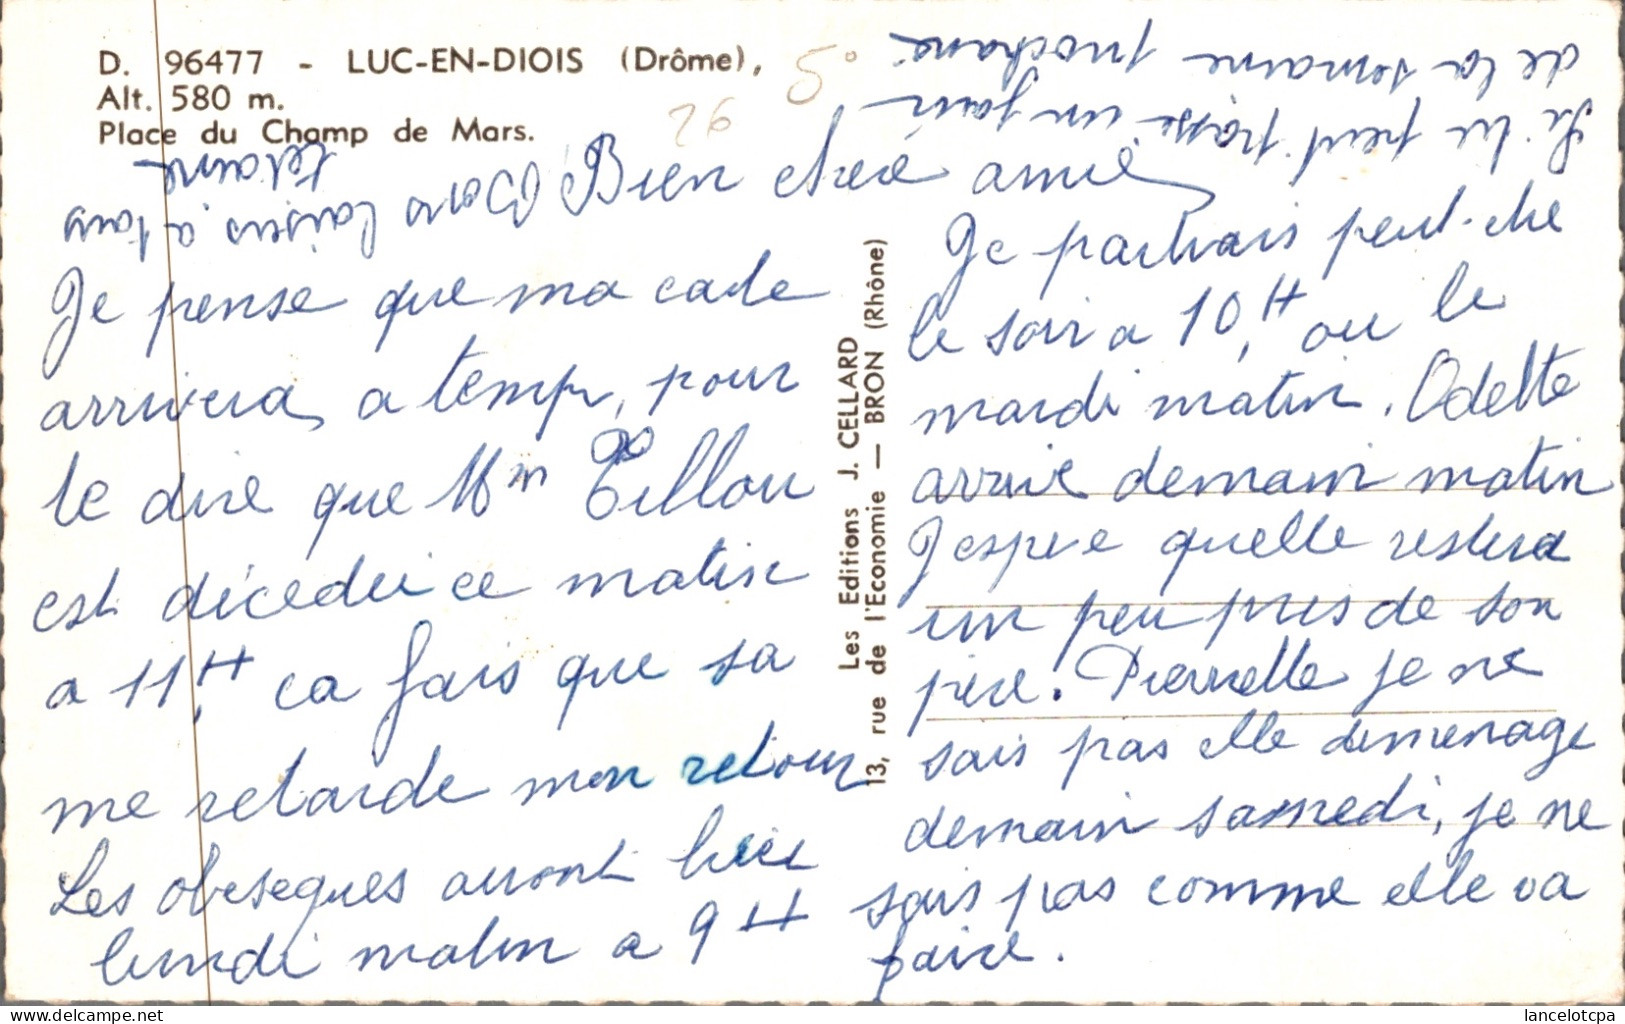 D. 96477 - LUC-EN-DIOIS (Drôme),
Alt. 580 m.
Place du Champ de Mars.
26
5°
Bien cheré amie
Je pense que ma carte
arrivera a temps, pour
te dire que Mm Tillou
est décedeé ce matin
a 11H, ca fais que sa
me retarde mon retour
Les obeseques auront lieu
lundi matin a 9H
Je partirais peut-etre
le soir a 10H, ou le
mardi matin. Odette
arrive demain matin
J'espere quelle restera
un peu pres de son
père. Pierrette je ne
sais pas elle demenage
demain samedi, je ne
sais pas comme elle va
faire.
Si tu peut passé un jour
de la semaine prochaine
Bons baisers a tous
Les Editions J. CELLARD
13, rue de l'Economie — BRON (Rhône)
lancelotcpa